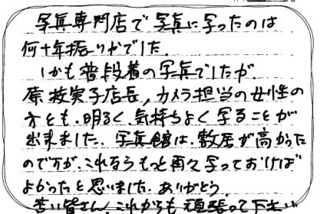 写真専門店で写真に写ったのは
何十年振りかでした。
しかも普段着の写真でしたが、
店長,カメラ担当の女性の
方とも、明るく、気持ちよく写ることが
出来ました。写真館は、敷居が高かった
のですが、これならもっと再々写っておけば
よかったと思いました。ありがとう。
若い皆さん、これからも頑張って下さい